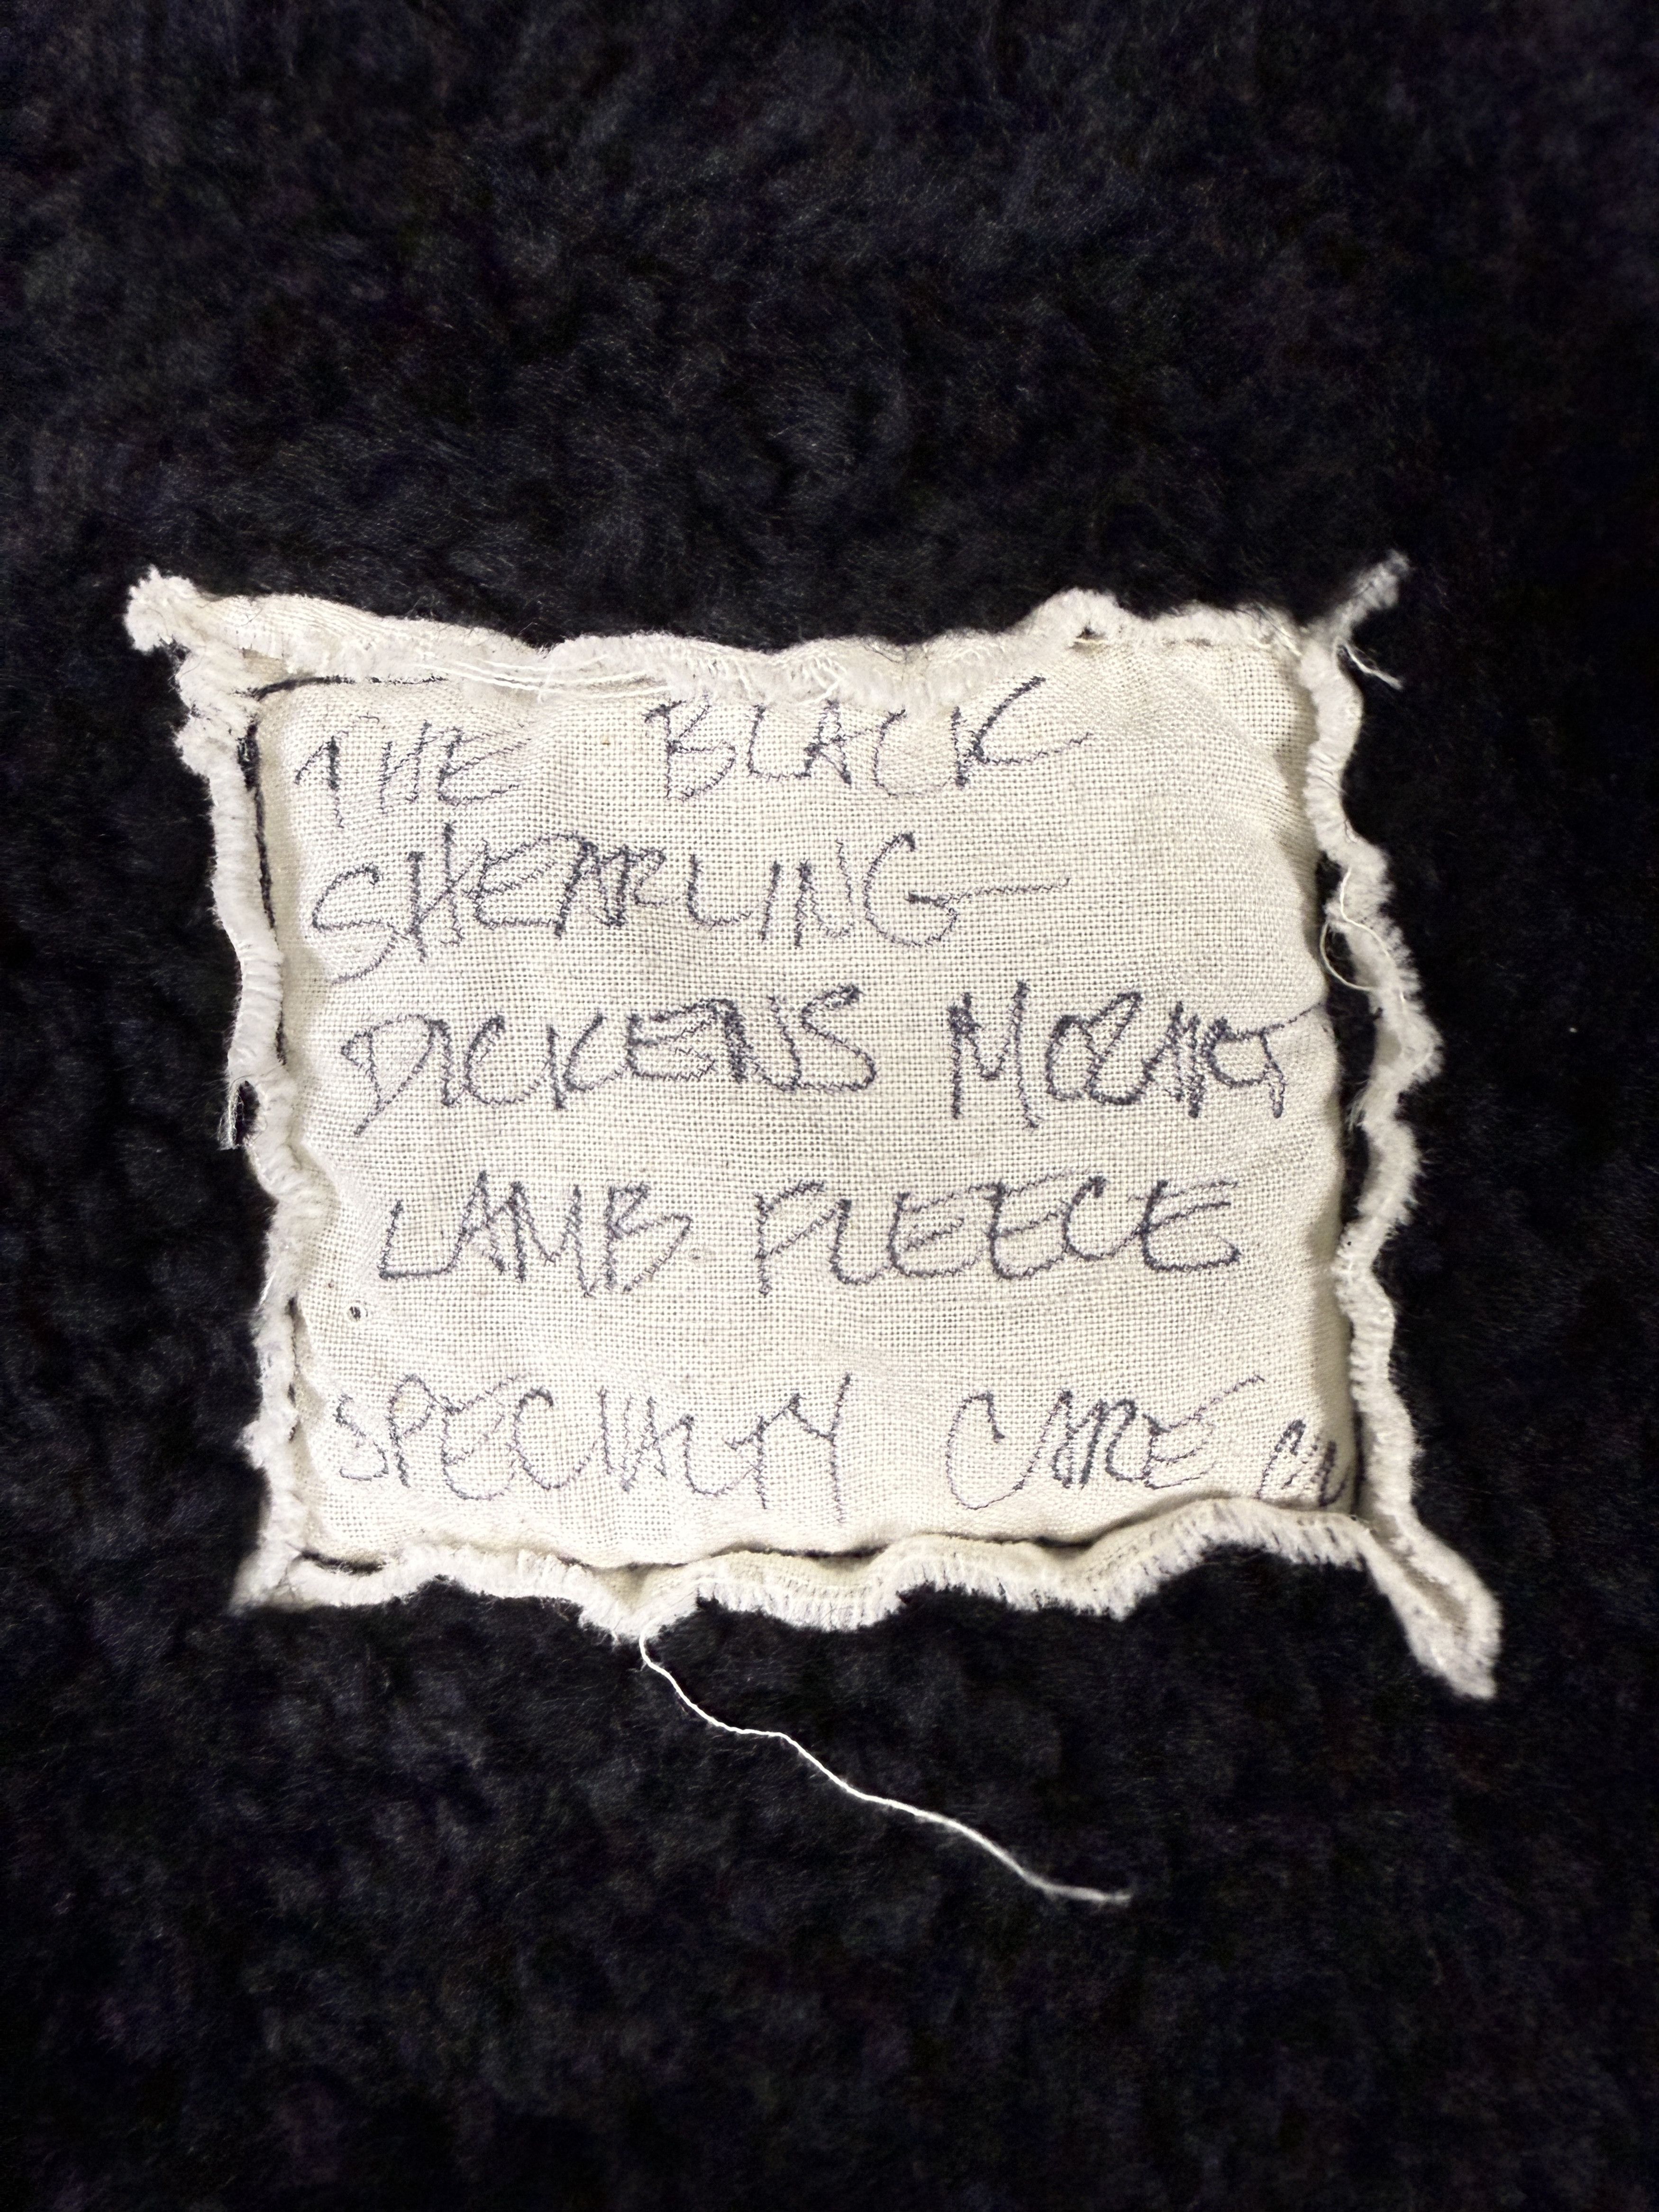 THE BLACK
SHEARLING
DICKENS MOZART
LAMB FLEECE
SPECIALTY CARE